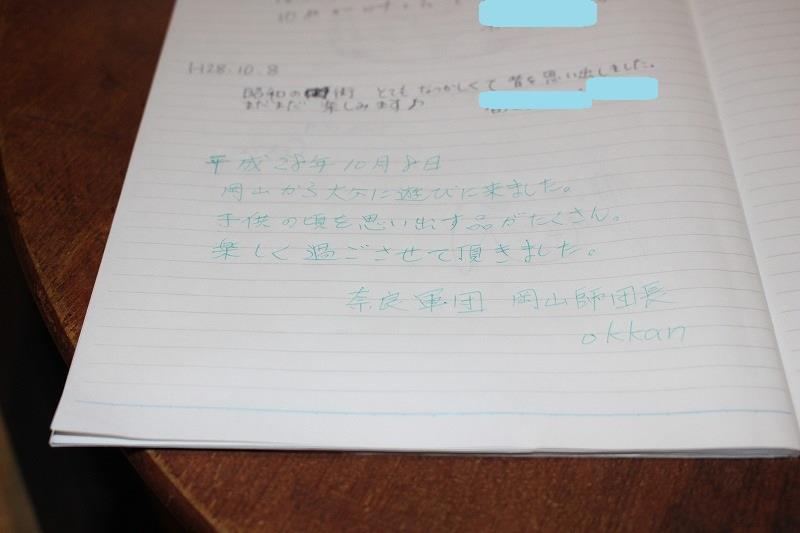 H28.10.8
昭和の街 とても なつかしくて 昔を思い出しました。
まだまだ 楽しみます♪
平成28年10月8日
岡山から大分に遊びに来ました。
子供の頃を思い出す品がたくさん。
楽しく過ごさせて頂きました。
奈良軍団 岡山師団長
okkan